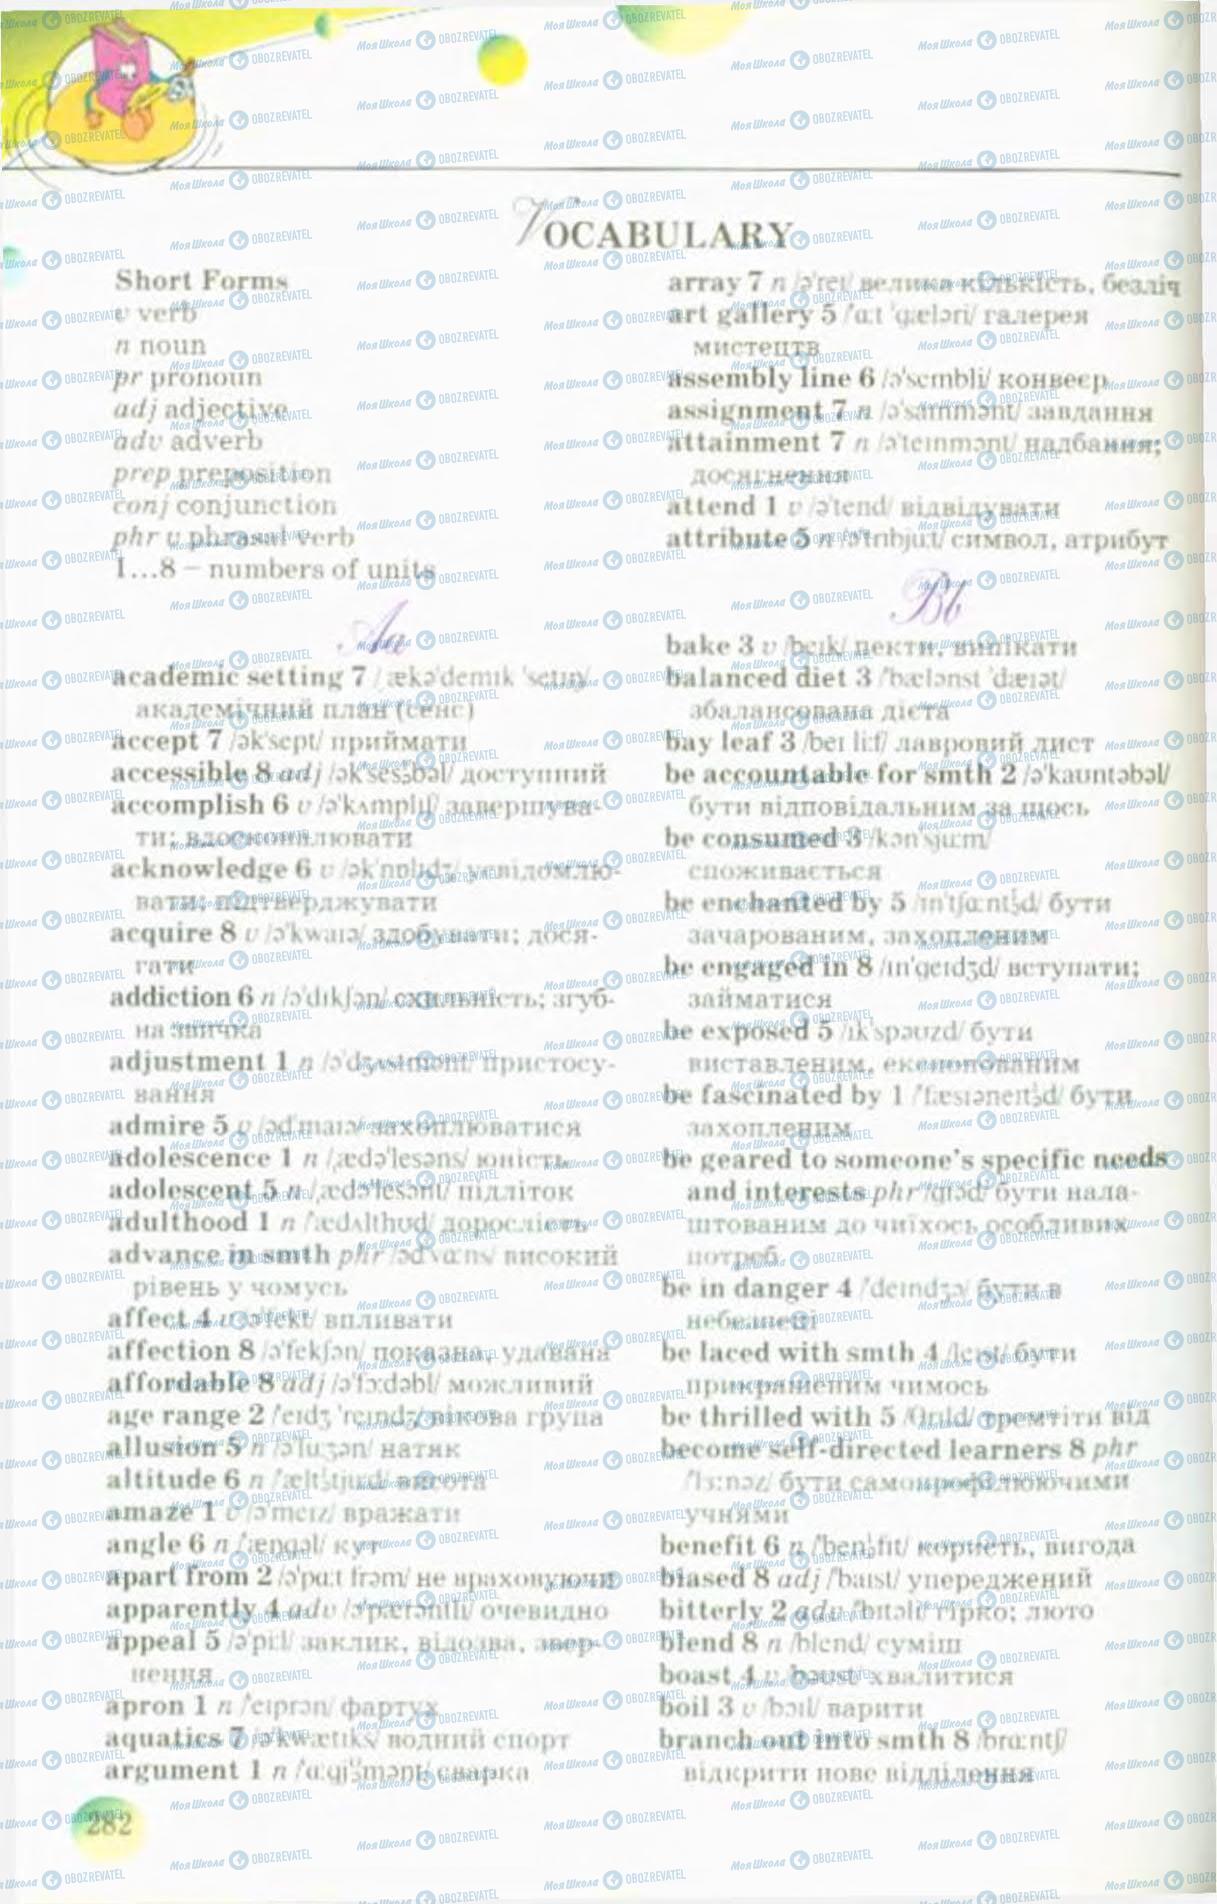 VOCABULARY
Short Forms
v verb
n noun
pr pronoun
adj adjective
adv adverb
prep preposition
conj conjunction
phr v phrasal verb
1...8 – numbers of units
Aa
academic setting 7 /ˌækəˈdemɪk ˈsetɪŋ/
академічний план (сенс)
accept 7 /əkˈsept/ приймати
accessible 8 adj /əkˈsesəbəl/ доступний
accomplish 6 v /əˈkʌmplɪʃ/ завершува-
ти; вдосконалювати
acknowledge 6 v /əkˈnɒlɪdʒ/ усвідомлю-
вати, підтверджувати
acquire 8 v /əˈkwaɪə/ здобувати; дося-
гати
addiction 6 n /əˈdɪkʃən/ схильність; згуб-
на звичка
adjustment 1 n /əˈdʒʌstmənt/ пристосу-
вання
admire 5 v /ədˈmaɪə/ захоплюватися
adolescence 1 n /ˌædəˈlesəns/ юність
adolescent 5 n /ˌædəˈlesənt/ підліток
adulthood 1 n /ˈædʌlthʊd/ дорослість
advance in smth phr /ədˈvɑːns/ високий
рівень у чомусь
affect 4 v /əˈfekt/ впливати
affection 8 /əˈfekʃən/ показна, удавана
affordable 8 adj /əˈfɔːdəbl/ можливий
age range 2 /ˈeɪdʒ ˈreɪndʒ/ вікова група
allusion 5 n /əˈluːʒən/ натяк
altitude 6 n /ˈæltɪtjuːd/ висота
amaze 1 v /əˈmeɪz/ вражати
angle 6 n /ˈæŋgəl/ кут
apart from 2 /əˈpɑːt frəm/ не враховуючи
apparently 4 adv /əˈpærəntli/ очевидно
appeal 5 /əˈpiːl/ заклик, відозва, звер-
нення
apron 1 n /ˈeɪprən/ фартух
aquatics 7 /əˈkwætɪks/ водний спорт
argument 1 n /ˈɑːgjʊmənt/ сварка
array 7 n /əˈreɪ/ велика кількість, безліч
art gallery 5 /ˈɑːt ˈgæləri/ галерея
мистецтв
assembly line 6 /əˈsembli/ конвеєр
assignment 7 n /əˈsaɪnmənt/ завдання
attainment 7 n /əˈteɪnmənt/ надбання;
досягнення
attend 1 v /əˈtend/ відвідувати
attribute 5 n /əˈtrɪbjuːt/ символ, атрибут
Bb
bake 3 v /beɪk/ пекти, випікати
balanced diet 3 /ˈbælənst ˈdæɪət/
збалансована дієта
bay leaf 3 /beɪ liːf/ лавровий лист
be accountable for smth 2 /əˈkaʊntəbəl/
бути відповідальним за щось
be consumed 3 /kənˈsjuːm/
споживається
be enchanted by 5 /ɪnˈtʃɑːntɪd/ бути
зачарованим, захопленим
be engaged in 8 /ɪnˈgeɪdʒd/ вступати;
займатися
be exposed 5 /ɪkˈspəʊzd/ бути
виставленим, експонованим
be fascinated by 1 /ˈfæsɪəneɪtɪd/ бути
захопленим
be geared to someone's specific needs
and interests phr /gɪəd/ бути нала-
штованим до чиїхось особливих
потреб
be in danger 4 /ˈdeɪndʒə/ бути в
небезпеці
be laced with smth 4 /leɪst/ бути
прикрашеним чимось
be thrilled with 5 /θrɪld/ тремтіти від
become self-directed learners 8 phr
/ˈlɜːnəz/ бути самопрофілюючими
учнями
benefit 6 n /ˈbenɪfɪt/ користь, вигода
biased 8 adj /ˈbaɪəst/ упереджений
bitterly 2 adv /ˈbɪtəli/ гірко; люто
blend 8 n /blend/ суміш
boast 4 v /bəʊst/ хвалитися
boil 3 v /bɔɪl/ варити
branch out into smth 8 /brɑːntʃ/
відкрити нове відділення
282